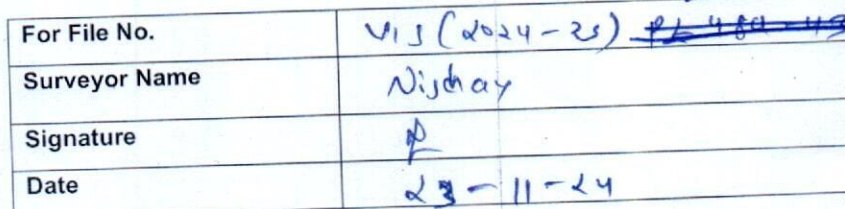 For File No. VIS (2024-25)
Surveyor Name Nishay
Signature
Date 23-11-24